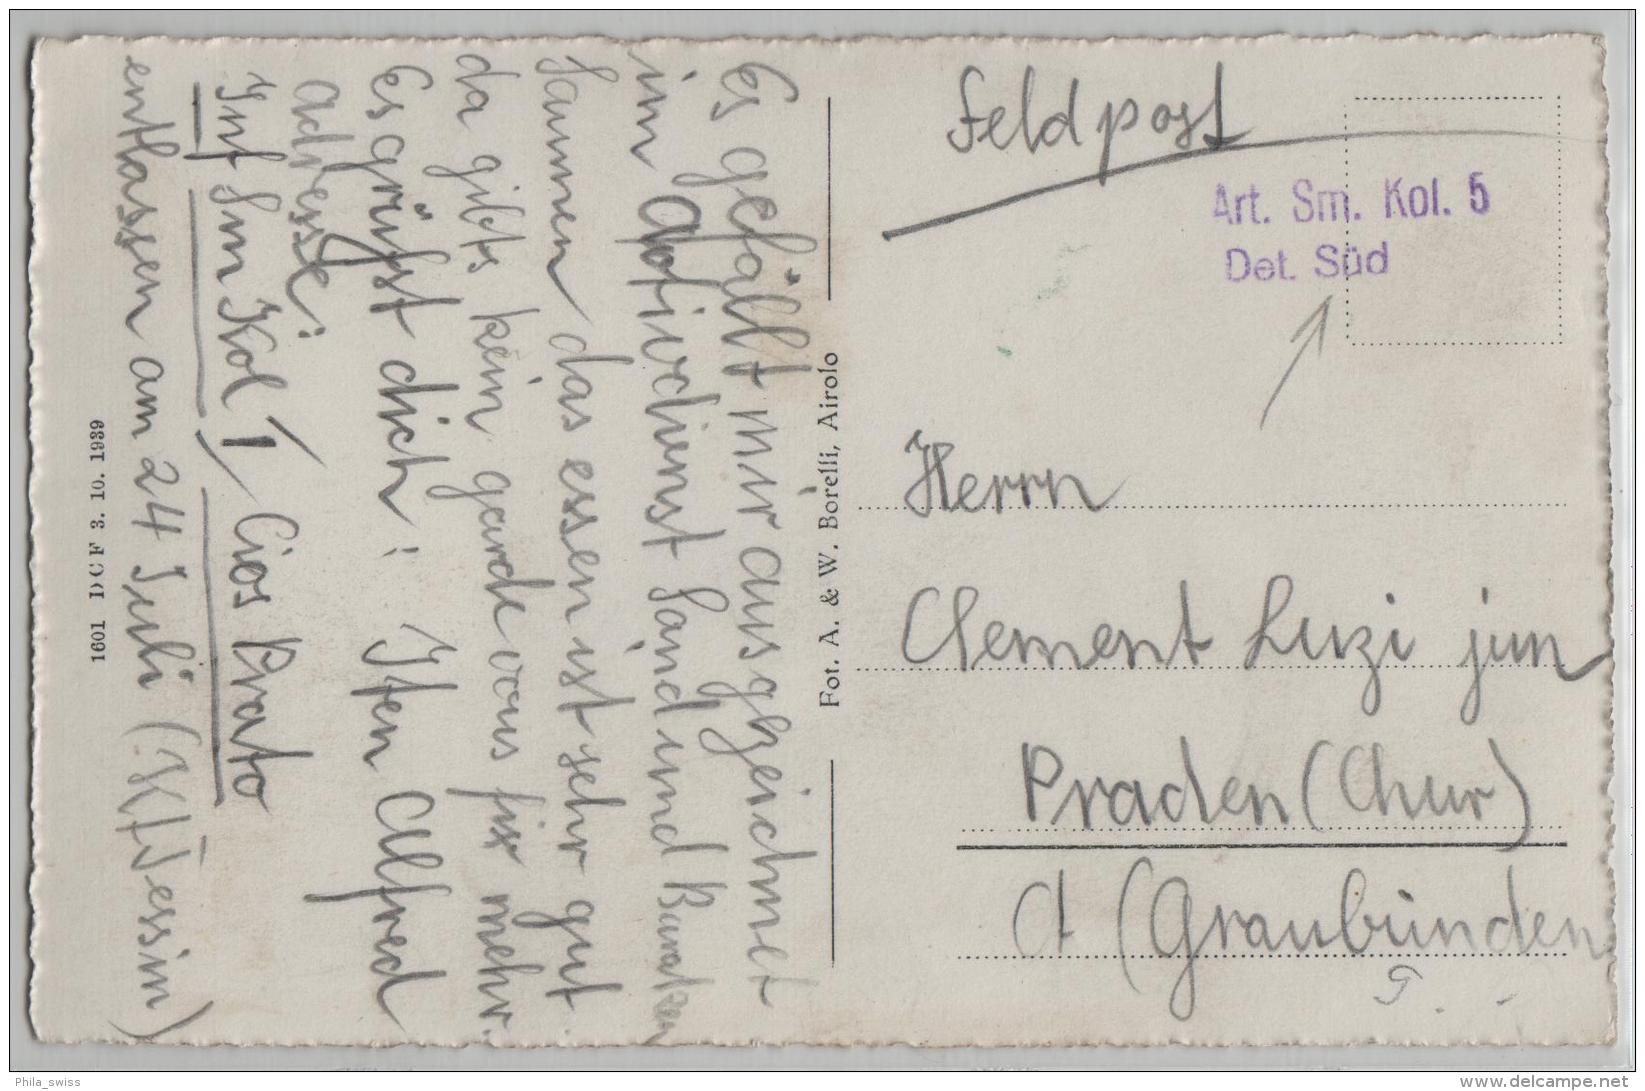 Es gefällt mir ausgezeichnet
im Aktivdienst Sand und Baracken
Saumen das essen ist sehr gut
da gibts kein garde vous fix mehr.
Es grüsst dich! Iten Alfred
Adresse:
Inf Sm Kol 1/ Cios Prato
entlassen am 24 Juli (Kt Tessin)
1601 IDCF 3. 10. 1939
Fot. A. & W. Borelli, Airolo
Feldpost
Art. Sm. Kol. 5
Det. Süd
Herrn
Clement Luzi jun
Praden (Chur)
Ct (Graubünden
Phila_swiss
www.delcampe.net